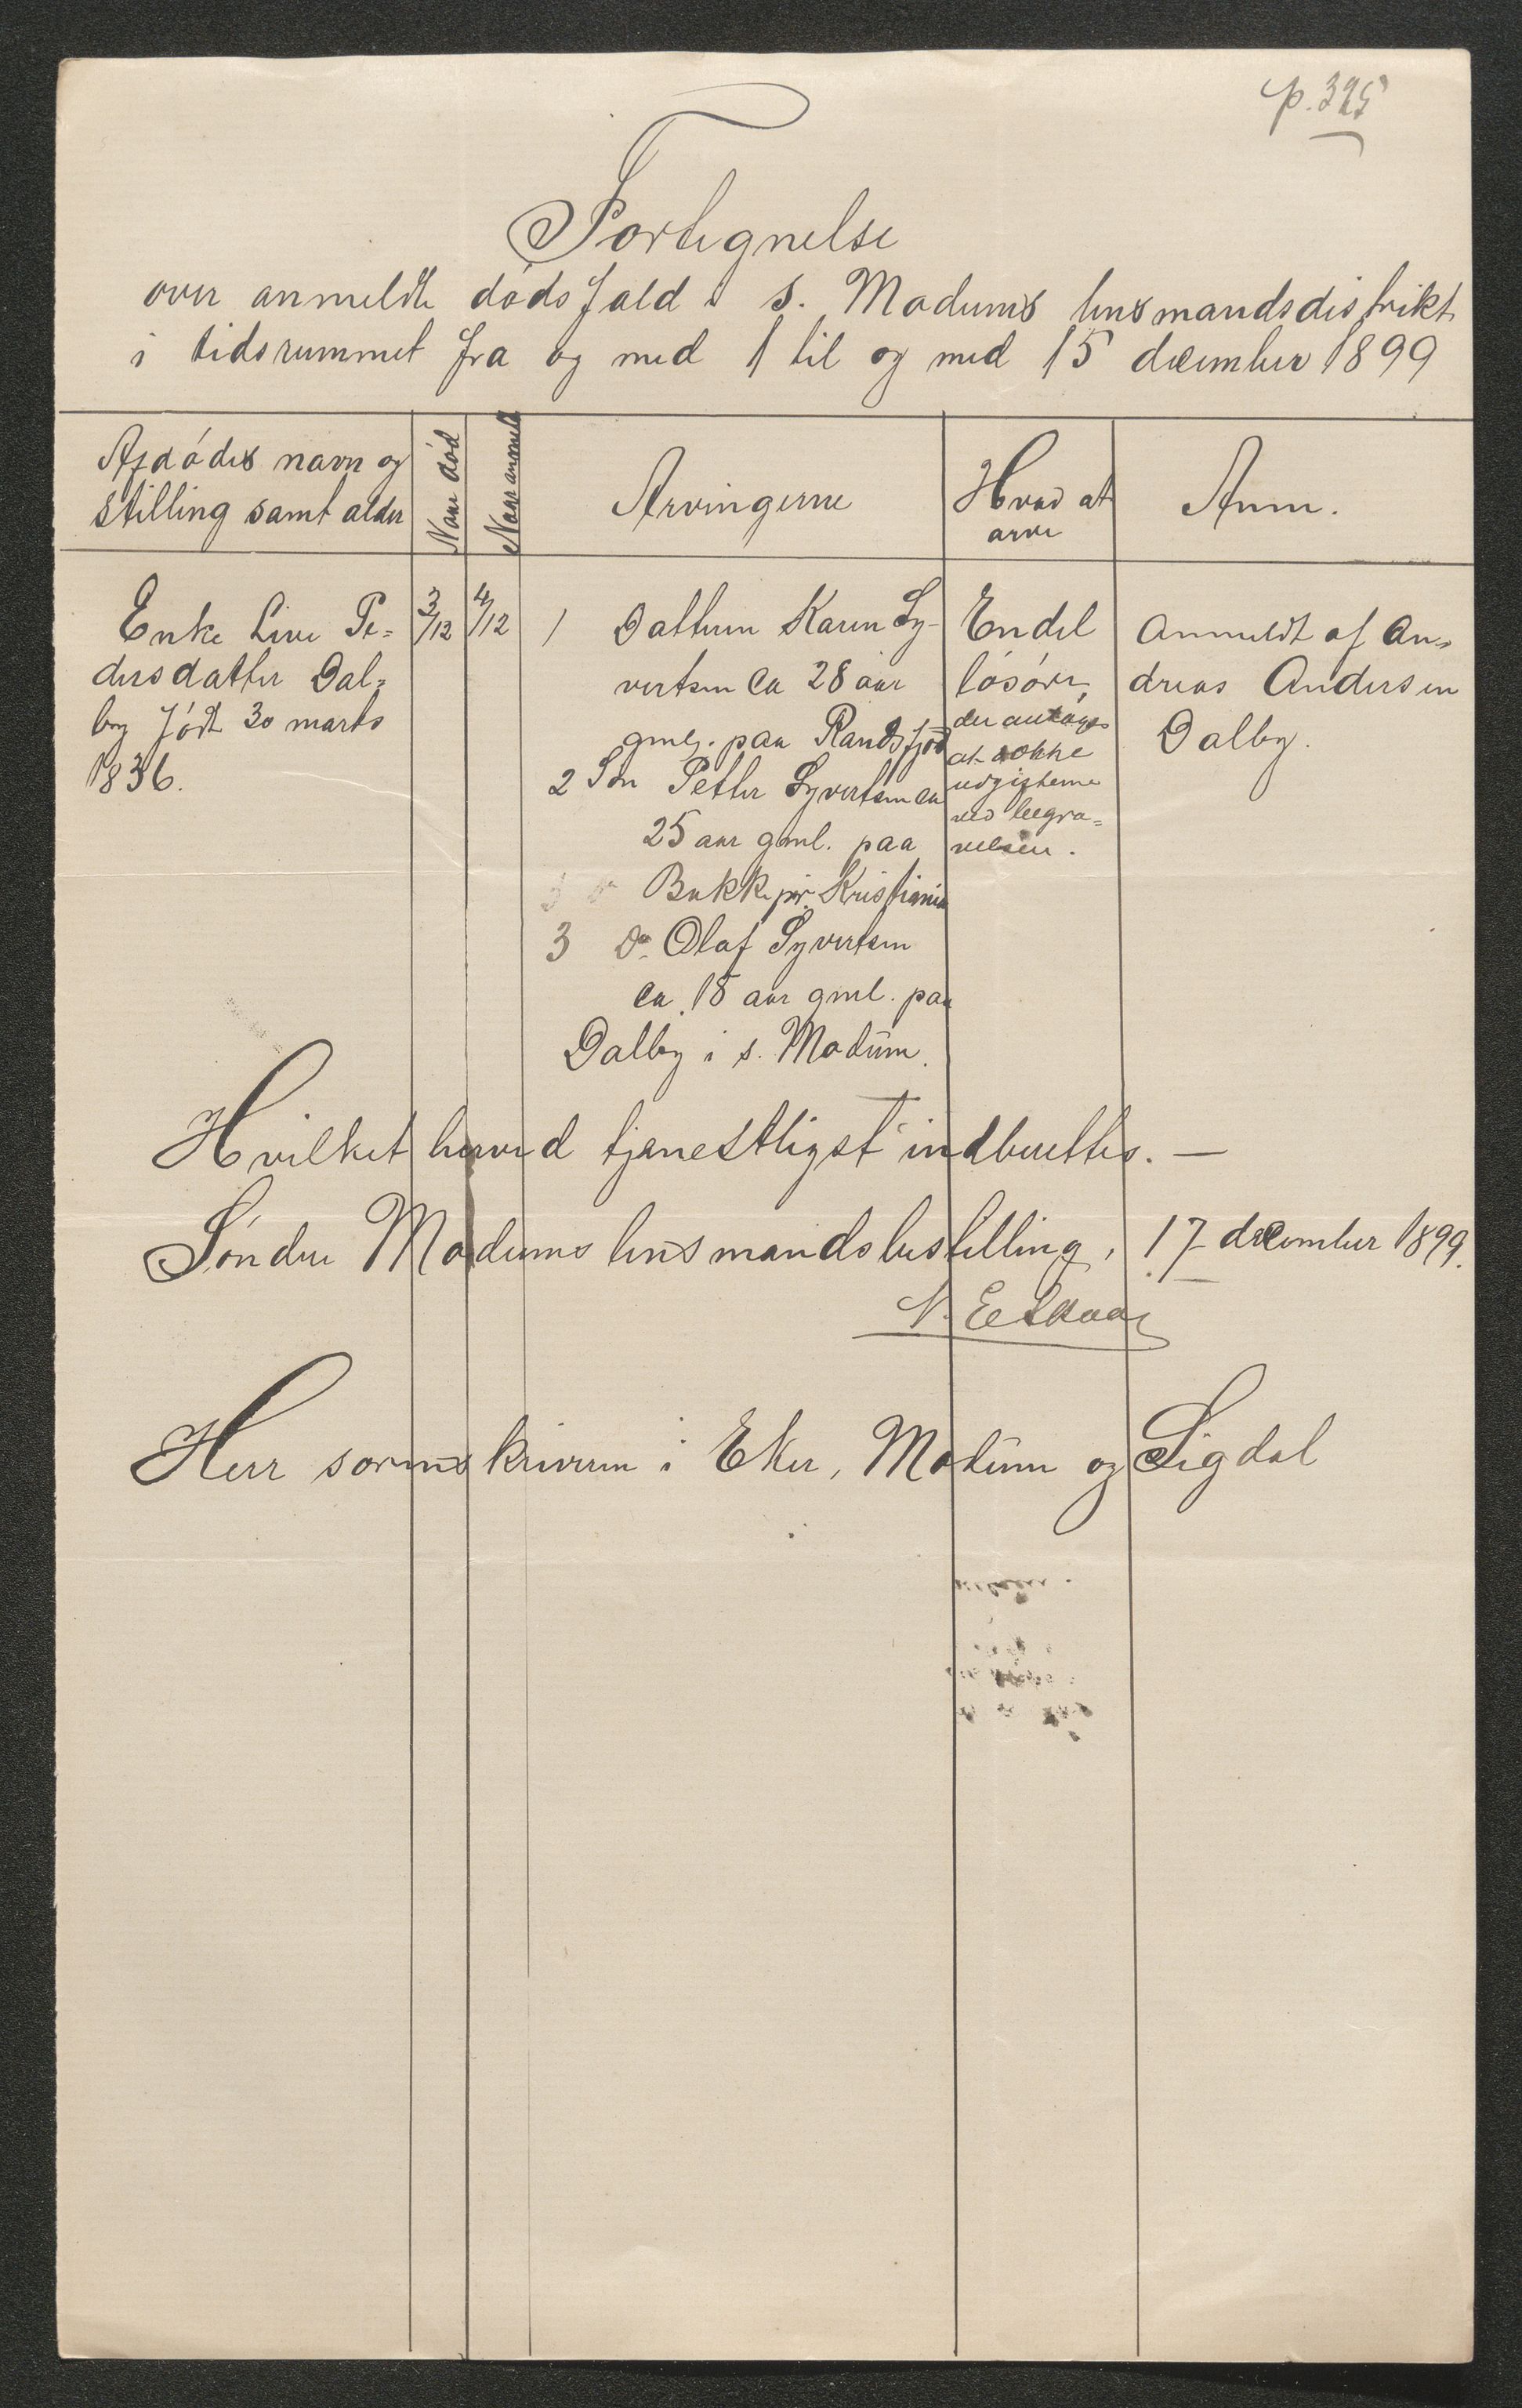 p. 325
Fortegnelse
over anmeldte dødsfald i s. Modums lensmandsdistrikt
i tidsrummet fra og med 1 til og med 15 december 1899
Afdødes navn og
stilling samt alder
Naar død
Naar anmeldt
Arvingerne
Hvad at
arve
Anm.
Enke Live Pe=
dersdatter Dal=
by født 30 marts
1836.
3/12
4/12
1 Datteren Karen Sy-
vertsen ca 28 aar
gml. paa Randsfjord
2 Søn Petter Syvertsen ca
25 aar gml. paa
Bakke pr. Kristiania
3 Do Olaf Syvertsen
ca. 18 aar gml. paa
Dalby i s. Modum.
Endel
løsøre,
der antages
at
udgifterne
ved begra=
velsen.
Anmeldt af An=
dreas Andersen
Dalby.
Hvilket herved tjenestligst indberettes. —
Søndre Modums lensmandsbestilling, 17 december 1899.
Herr sorenskriveren i Eker, Modum og Sigdal